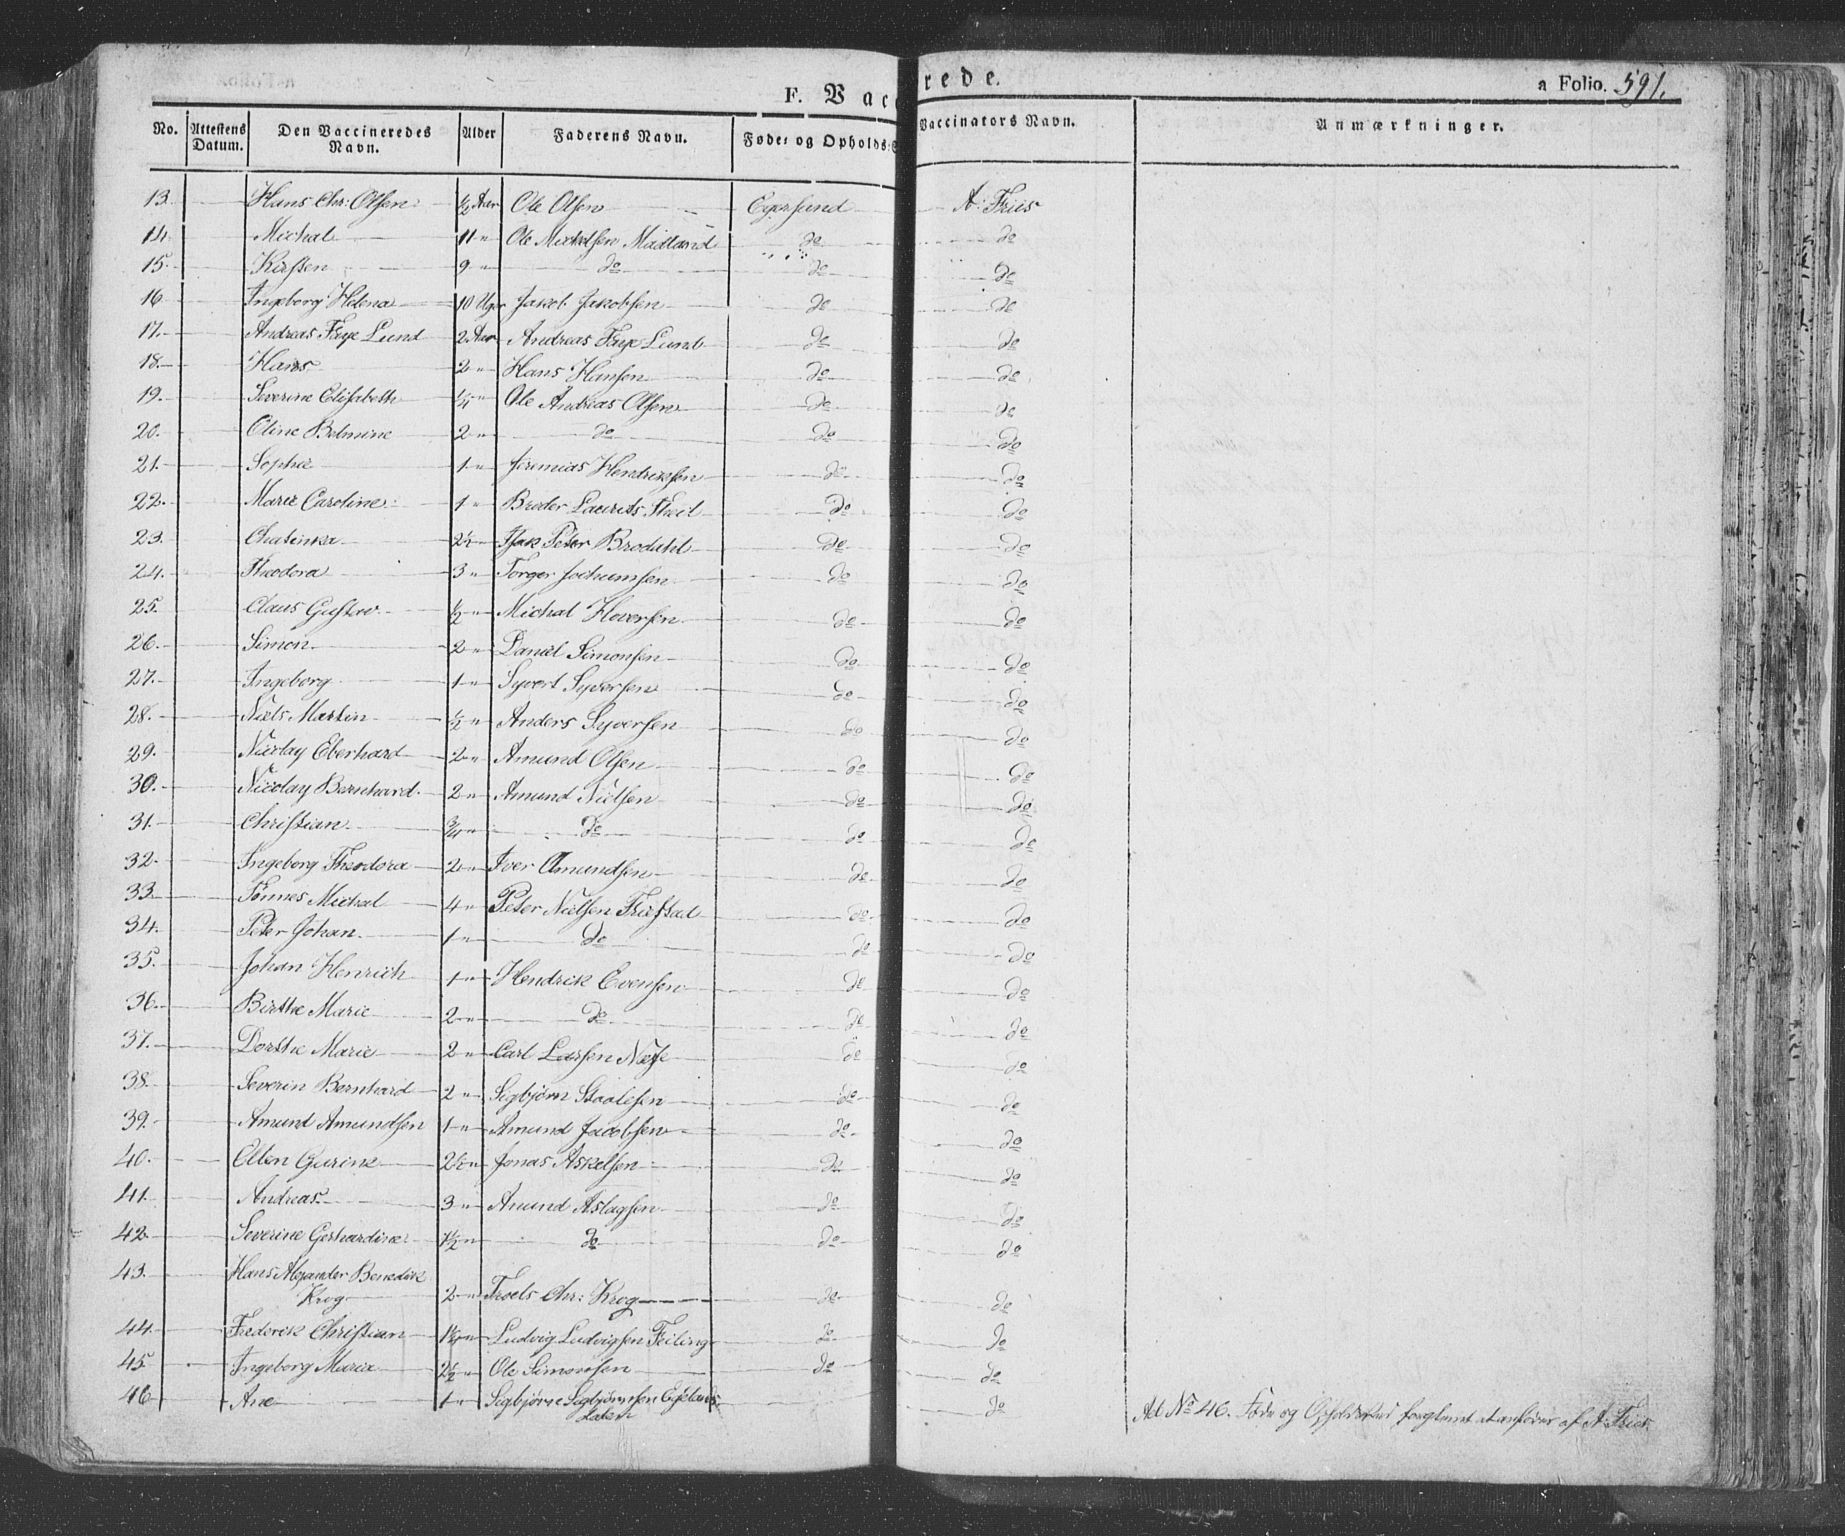 F. Vac rede.
a Folio. 591.
No. Attestens Datum. Den Vaccineredes Navn. Alder Faderens Navn. Føde- og Opholds-S Vaccinators Navn. Anmærkninger.
13. Hans Chr: Olsen ½ Aar Ole Olsen Egersund A: Friis
14. Michal 11 " Ole Michelsen Midland do do
15. Kirsten 9 " do do do
16 Ingeborg Helena 10 Uger Jakob Jakobsen do do
17. Andreas Faye Lund 2 Aar Andreas Faye Lund do do
18. Hans 2 " Hans Hansen do do
19. Severine Elisabeth ¼ " Ole Andreas Olsen do do
20. Oline Bolmine 2 " do do do
21. Sophie 1 " Jeremias Hendriksen do do
22. Marie Caroline 1 " Broder Laurits Theil do do
23. Chatinka 2½ Isak Peter Brodahl do do
24. Theodora 3 " Torger Jochumsen do do
25. Claus Gustav ½ " Michal Hoversen do do
26. Simon 2 " Daniel Simonsen do do
27. Ingeborg 1 " Syvert Syversen do do
28. Niels Martin ½ " Anders Syversen do do
29. Nicolay Eberhard 2 " Amund Olsen do do
30. Nicolay Bernhard 2 " Amund Nielsen do do
31. Christian ¾ " do do do
32. Ingeborg Theodora 2 " Iver Amundsen do do
33. Tønnes Michal 4 " Peter Nielsen Friestad do do
34. Peter Johan 1 " do do do
35. Johan Henrich 1 " Hendrik Evensen do do
36. Birthe Marie 2 " do do do
37. Dorthe Marie 2 " Carl Larsen Næse do do
38. Severin Bernhard 2 " Sigbjørn Staalesen do do
39. Amund Amundsen 1 " Amund Jacobsen do do
40. Ellen Gurine 2½ " Jonas Askelsen do do
41. Andreas 3 " Amund Aslagsen do do
42. Severine Gerhardine 1½ " do do do
43. Hans Alexander Benedikt
Krog 2 " Troels Chr: Krog do do
44. Frederik Christian 1½ " Ludvig Ludvigsen Feiling do do
45. Ingeborg Maria 2½ Ole Simonsen do do
46 Ane 1 " Sigbjørn Sigbjørnsen Egelands
do Ad No 46. Føde og Opholdssted af A: Friis.